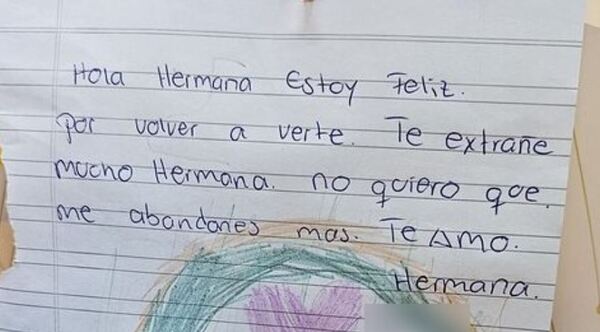 Hola Hermana Estoy Feliz.
por volver a verte. Te extrañe
mucho Hermana. no quiero que.
me abandones mas. Te Amo.
Hermana.